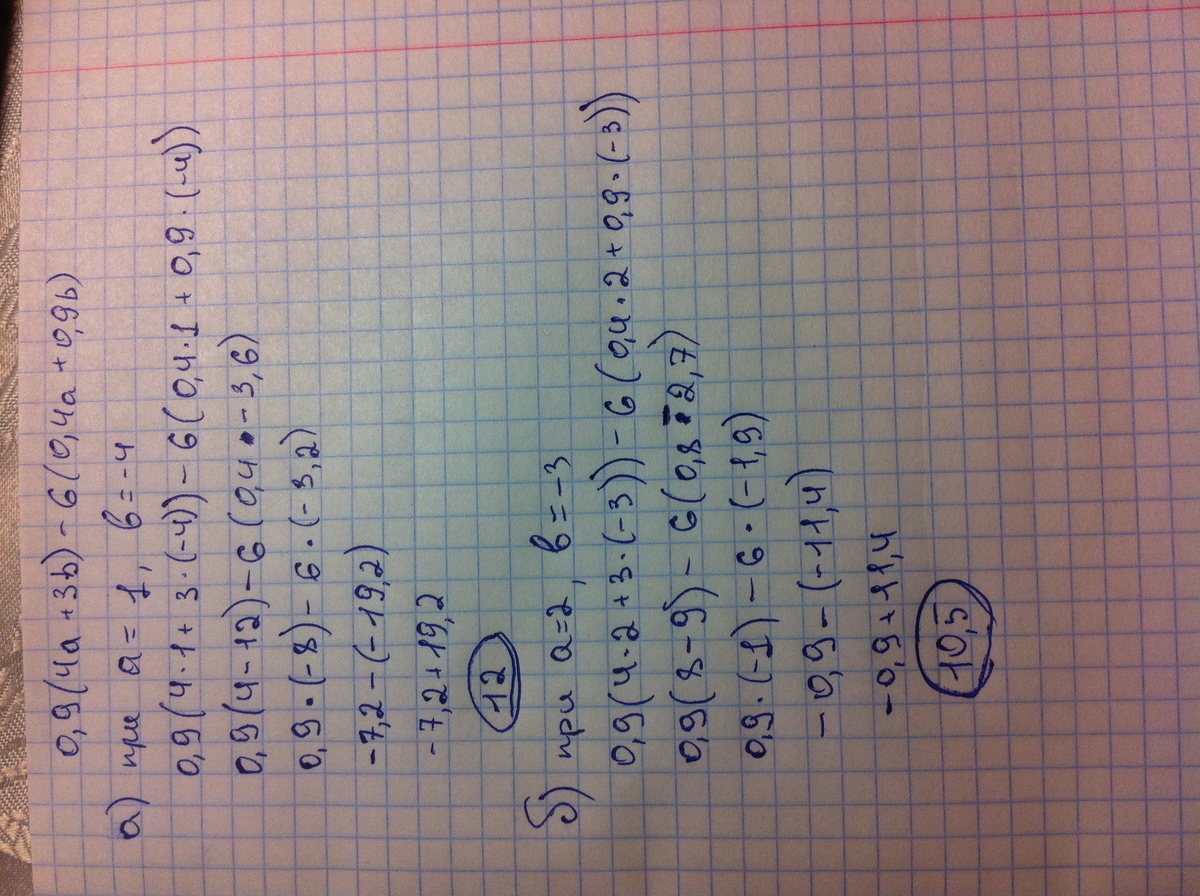 0,9(4a+3b)-6(0,4a+0,9b)
а) при a=1, b=-4
0,9(4·1+3·(-4))-6(0,4·1+0,9·(-4))
0,9(4-12)-6(0,4-3,6)
0,9·(-8)-6·(-3,2)
-7,2-(-19,2)
-7,2+19,2
12
б) при a=2, b=-3
0,9(4·2+3·(-3))-6(0,4·2+0,9·(-3))
0,9(8-9)-6(0,8-2,7)
0,9·(-1)-6·(-1,9)
-0,9-(-11,4)
-0,9+11,4
10,5